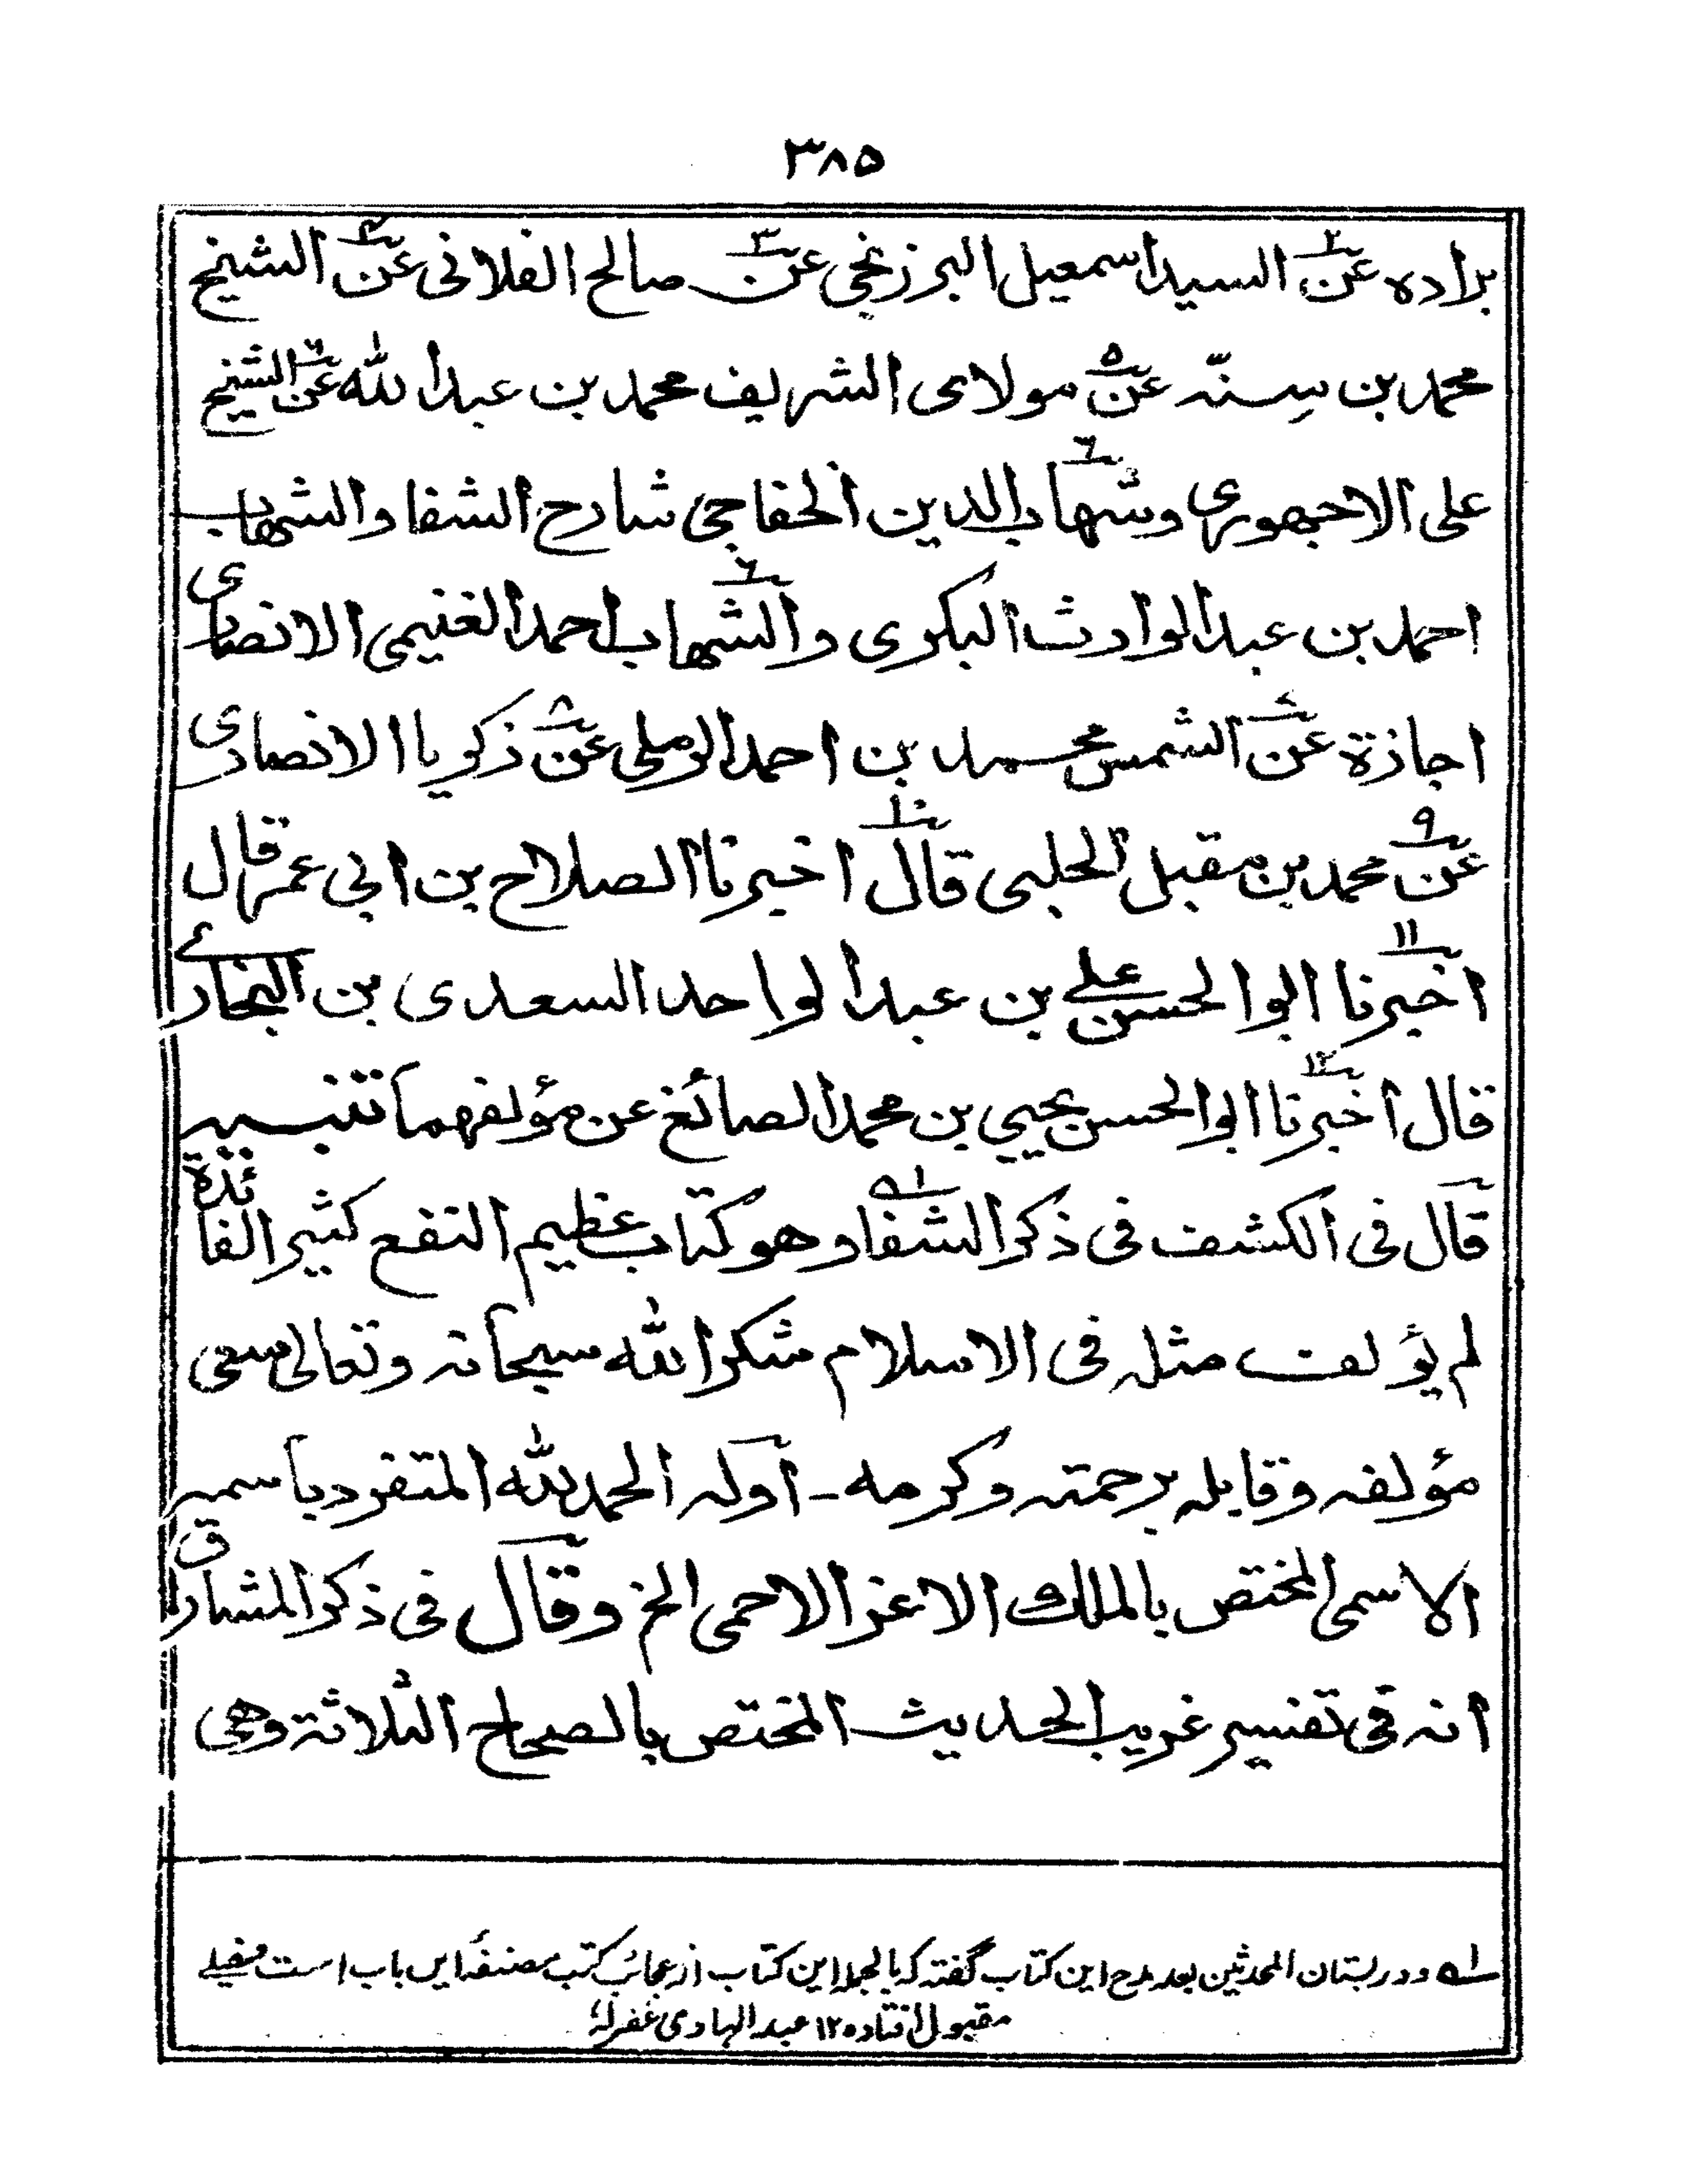 ٣٨٥
براده عن السيد اسمعيل البرزنجى عن صالح الفلانى عن الشيخ
محمد بن سنّه عن مولاى الشريف محمد بن عبد الله عن الشيخ
على الاجهورى وشهاب الدين الخفاجى شارح الشفا والشهاب
احمد بن عبد الوارث البكرى والشهاب احمد الغنيمى الانصارى
اجازة عن الشمس محمد بن احمد الرملى عن زكريا الانصارى
عن محمد بن مقبل الحلبى قال اخبرنا الصلاح بن ابى عمر قال
اخبرنا ابوالحسن على بن عبد الواحد السعدى بن البخارى
قال اخبرنا ابوالحسن يحيى بن محمد الصائغ عن مؤلفهما تنبيه
قال فى الكشف فى ذكر الشفا وهو كتاب عظيم النفع كثير الفائدة
لم يؤلف مثله فى الاسلام شكر الله سبحانه وتعالى سعى
مؤلفه وقابله برحمته وكرمه - اوله الحمد لله المتفرد باسمه
الاسمى المختص بالملك الاعز الاحمى الخ وقال فى ذكر المشارق
انه فى تفسير غريب الحديث المختص بالصحاح الثلاثة وهى
١ه ودر بستان المحدثين بعد مدح اين كتاب گفته كه بالجمله اين كتاب از عجائب كتب مصنفهٔ اين باب است خيلے
مقبول افتاده ١٢ عبد الهادى غفرلهٗ